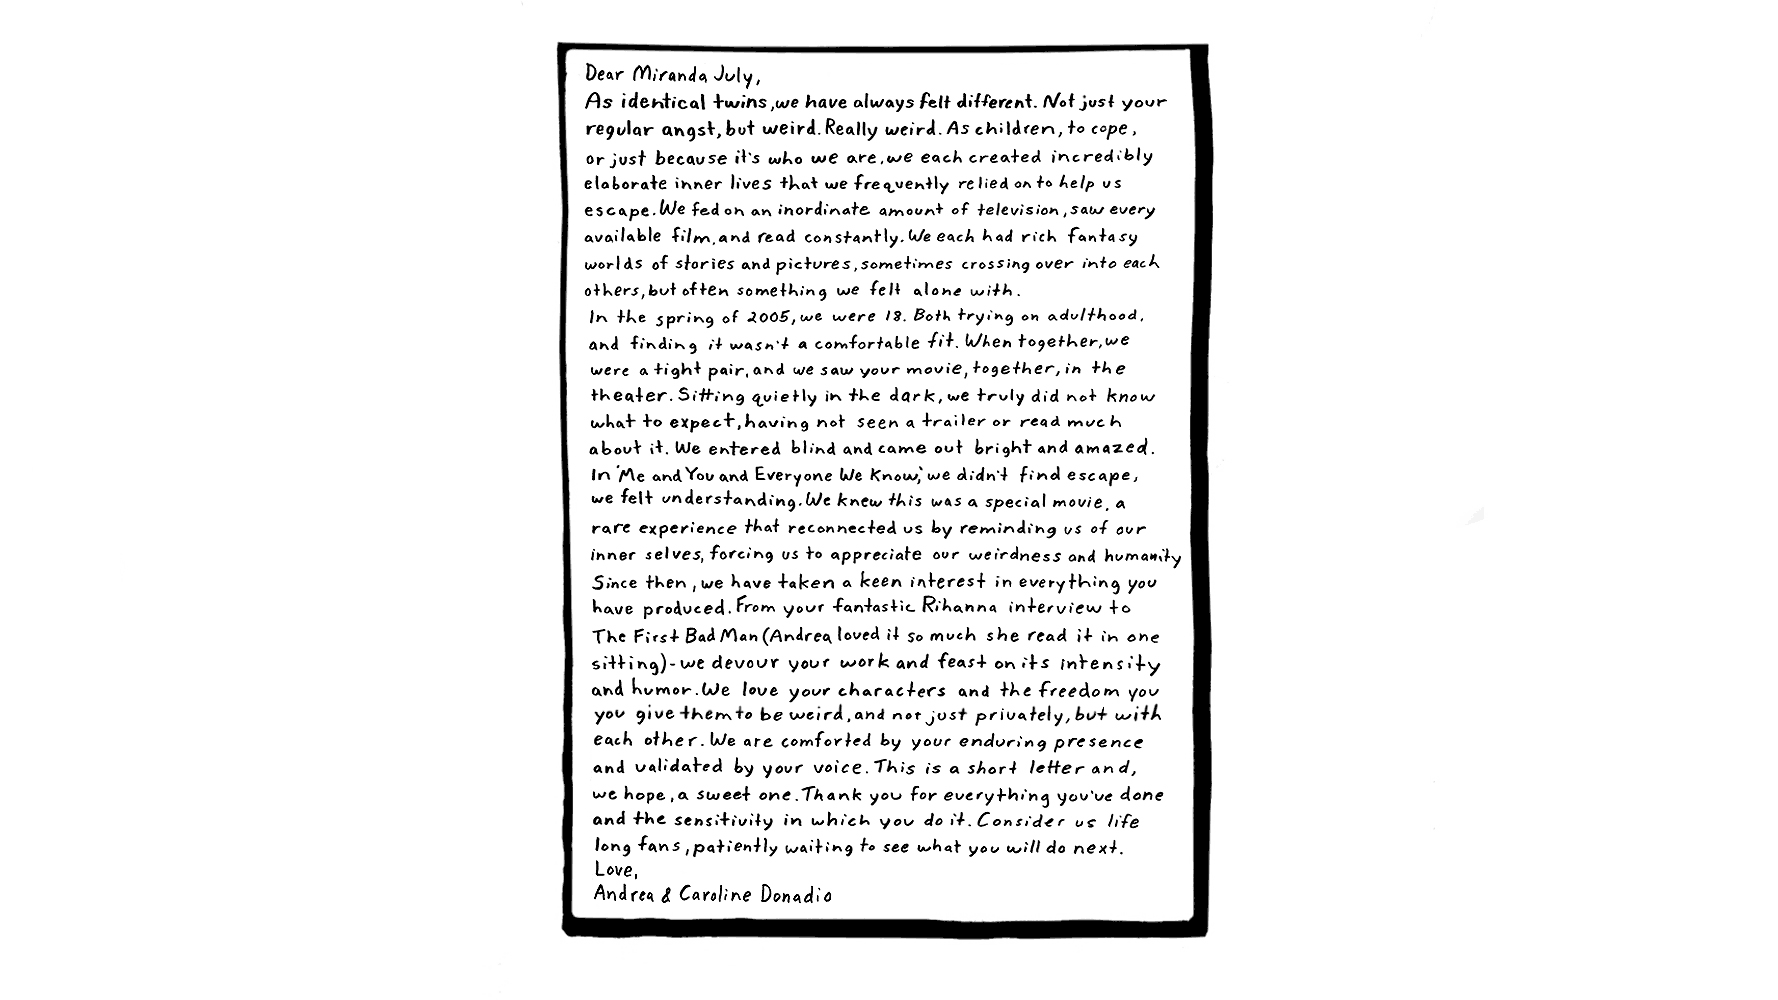 Dear Miranda July,
As identical twins, we have always felt different. Not just your
regular angst, but weird. Really weird. As children, to cope,
or just because it's who we are, we each created incredibly
elaborate inner lives that we frequently relied on to help us
escape. We fed on an inordinate amount of television, saw every
available film, and read constantly. We each had rich fantasy
worlds of stories and pictures, sometimes crossing over into each
others, but often something we felt alone with.
In the spring of 2005, we were 18. Both trying on adulthood,
and finding it wasn't a comfortable fit. When together, we
were a tight pair, and we saw your movie, together, in the
theater. Sitting quietly in the dark, we truly did not know
what to expect, having not seen a trailer or read much
about it. We entered blind and came out bright and amazed.
In 'Me and You and Everyone We Know,' we didn't find escape,
we felt understanding. We knew this was a special movie, a
rare experience that reconnected us by reminding us of our
inner selves, forcing us to appreciate our weirdness and humanity
Since then, we have taken a keen interest in everything you
have produced. From your fantastic Rihanna interview to
The First Bad Man (Andrea loved it so much she read it in one
sitting) - we devour your work and feast on its intensity
and humor. We love your characters and the freedom you
you give them to be weird, and not just privately, but with
each other. We are comforted by your enduring presence
and validated by your voice. This is a short letter and,
we hope, a sweet one. Thank you for everything you've done
and the sensitivity in which you do it. Consider us life
long fans, patiently waiting to see what you will do next.
Love,
Andrea & Caroline Donadio